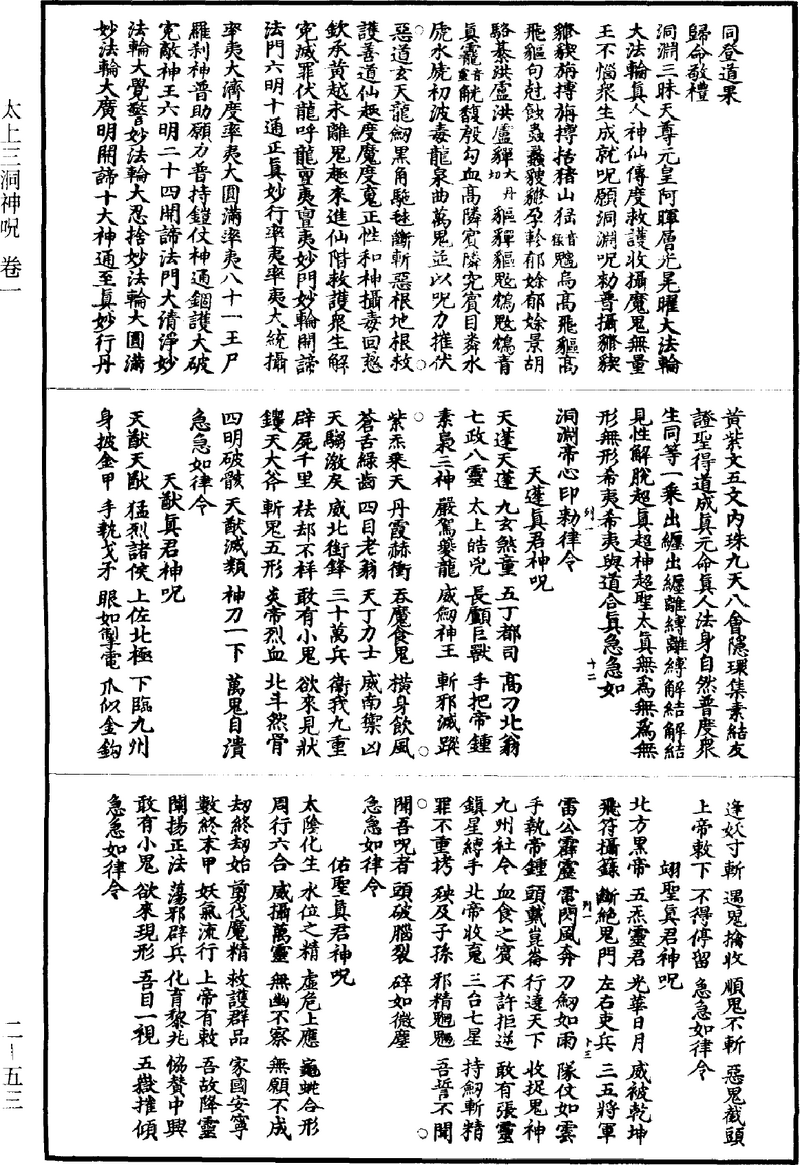 太上三洞神呪 卷一
二—五三
同登道果
歸命敬禮
洞淵三昧天尊元皇阿暉層光晃曜大法輪
大法輪真人神仙傳度救護收攝魔鬼無量
王不惱眾生成就呪願洞淵呪勑普攝
山猛 烏高飛貙高
飛貙句
駱綦洪盧洪盧貚大丹切貙貚貙
勾血高隣賓隣究賓目森水
虒水虒初波毒龍泉曲萬鬼並以呪力摧伏
惡道玄天龍劒黑角驅 斷斬惡根地根救
護善道仙趣度魔度鬼正性和神攝毒回
欽承黃越永離鬼趣來進仙階救護眾生解
冤滅罪伏龍呼龍亶夷亶夷妙門妙輪開諦
法門六明十通正真妙行率夷率夷大統攝
率夷大濟度率夷大圓滿率夷八十一王尸
羅刹神普助願力普持鎧仗神通錮護大破
冤敵神王六明二十四開諦法門大清淨妙
法輪大覺警妙法輪大忍捨妙法輪大圓滿
妙法輪大廣明開諦十大神通至真妙行丹
黃紫文五文內珠九天八會隱環集素結友
證聖得道成真元命真人法身自然普度眾
生同等一乘出纏出纏離縛離縛解結解結
見性解脫超真超神超聖太真無為無為無
形無形希夷希夷與道合真急急如
洞淵帝心印勑律令
天蓬真君神呪
天蓬天蓬 九玄煞童 五丁都司 高刁北翁
七政八靈 太上皓兇 長顱巨獸 手把帝鍾
素梟三神 嚴駕夔龍 威劒神王 斬邪滅蹤
紫炁乘天 丹霞赫衝 吞魔食鬼 橫身飲風
蒼舌綠齒 四目老翁 天丁力士 威南禦凶
天騶激戾 威北銜鋒 三十萬兵 衛我九重
辟屍千里 祛却不祥 敢有小鬼 欲來見狀
钁天大斧 斬鬼五形 炎帝烈血 北斗然骨
四明破骸 天猷滅類 神刀一下 萬鬼自潰
急急如律令
天猷真君神呪
天猷天猷 猛烈諸侯 上佐北極 下臨九州
身披金甲 手執戈矛 眼如掣電 爪似金鈎
逢妖寸斬 遇鬼擒收 順鬼不斬 惡鬼截頭
上帝敕下 不得停留 急急如律令
翊聖真君神呪
北方黑帝 五炁靈君 光華日月 威被乾坤
飛符攝籙 斷絕鬼門 左右吏兵 三五將軍
雷公霹靂 雷閃風奔 刀劒如雨 隊仗如雲
手執帝鍾 頭戴崑崙 行達天下 收捉鬼神
九州社令 血食之賓 不許拒逆 敢有張靈
鎮星縛手 北帝收鬼 三台七星 持劒斬精
罪不重拷 殃及子孫 邪精魍魎 吾誓不聞
聞吾呪者 頭破腦裂 碎如微塵
急急如律令
佑聖真君神呪
太陰化生 水位之精 虛危上應 龜蛇合形
周行六合 威攝萬靈 無幽不察 無願不成
劫終劫始 剪伐魔精 救護群品 家國安寧
數終末甲 妖氣流行 上帝有敕 吾故降靈
闡揚正法 蕩邪辟兵 化育黎兆 協贊中興
敢有小鬼 欲來現形 吾目一視 五嶽摧傾
急急如律令